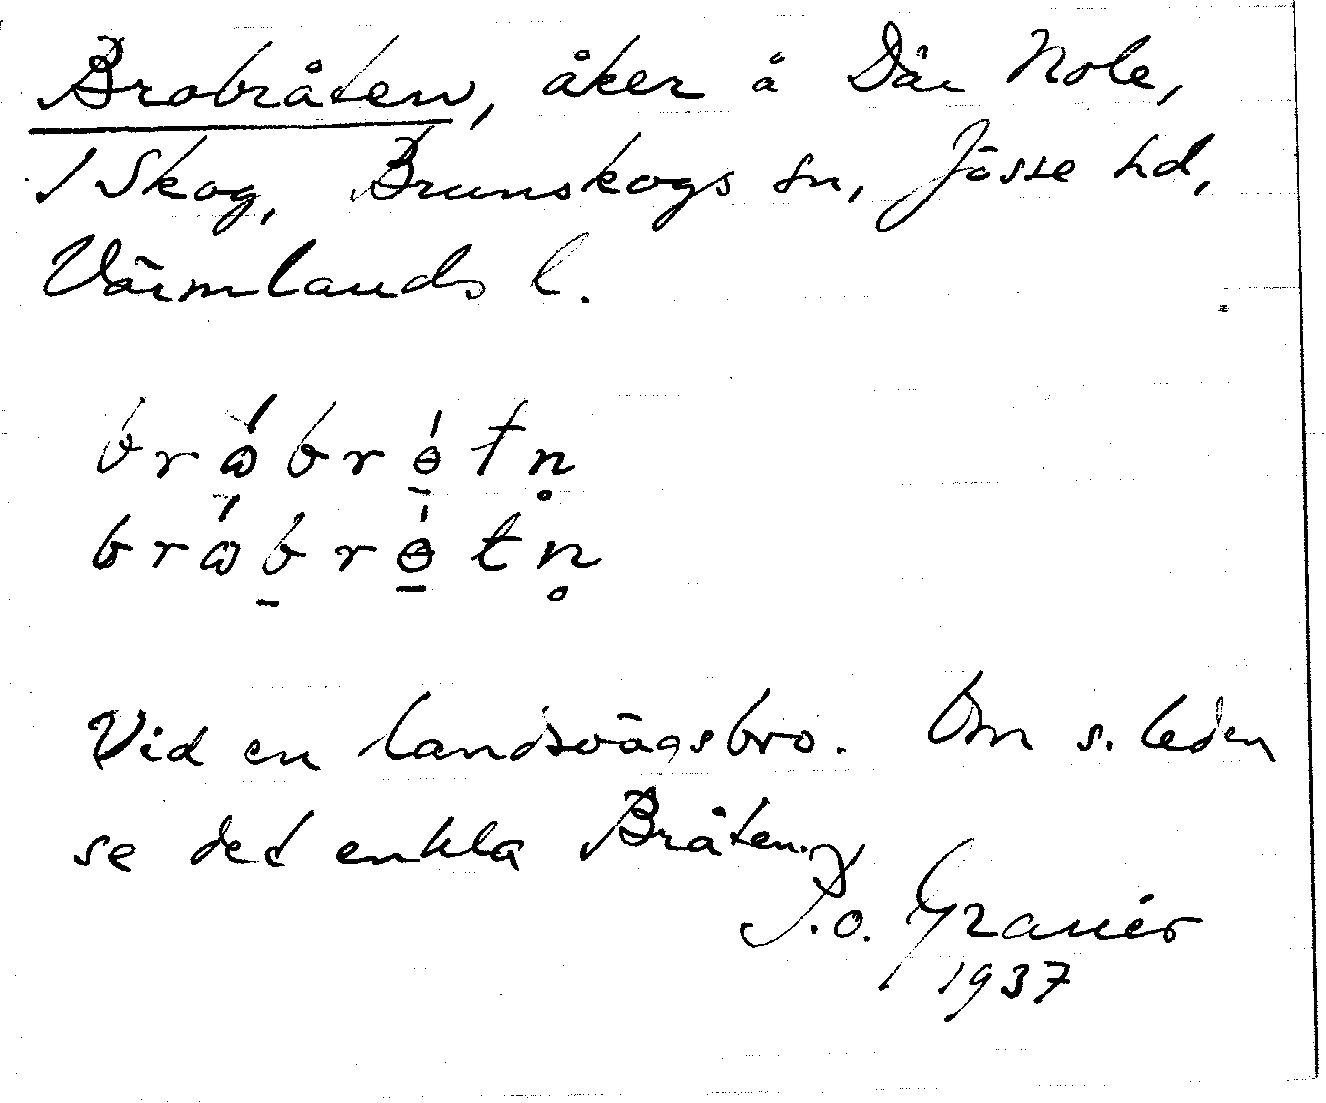 Brobråten, åker å Där Nole,
1 Skog, Brunskogs sn, Jösse hd,
Värmlands l.
brɷ́brɵ́tn̥
brɷ́b̠rɵ̠́tn̥
Vid en landsvägsbro. Om s. leden
se det enkla Bråten.
S.o. Granér
1937